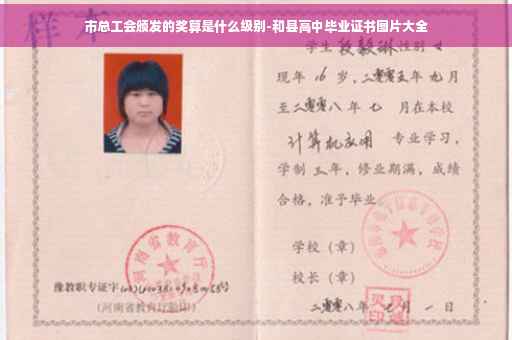 市总工会颁发的奖算是什么级别-和县高中毕业证书图片大全
样本
学生段毅琳性别女
现年16岁，二零零五年九月
至二零零八年七月在本校
计算机应用专业学习，
学制三年，修业期满，成绩
合格，准予毕业
学校（章）
校长（章）
河南省教育厅
豫教职专证字
（河南省教育厅验印）
二零零八年七月一日